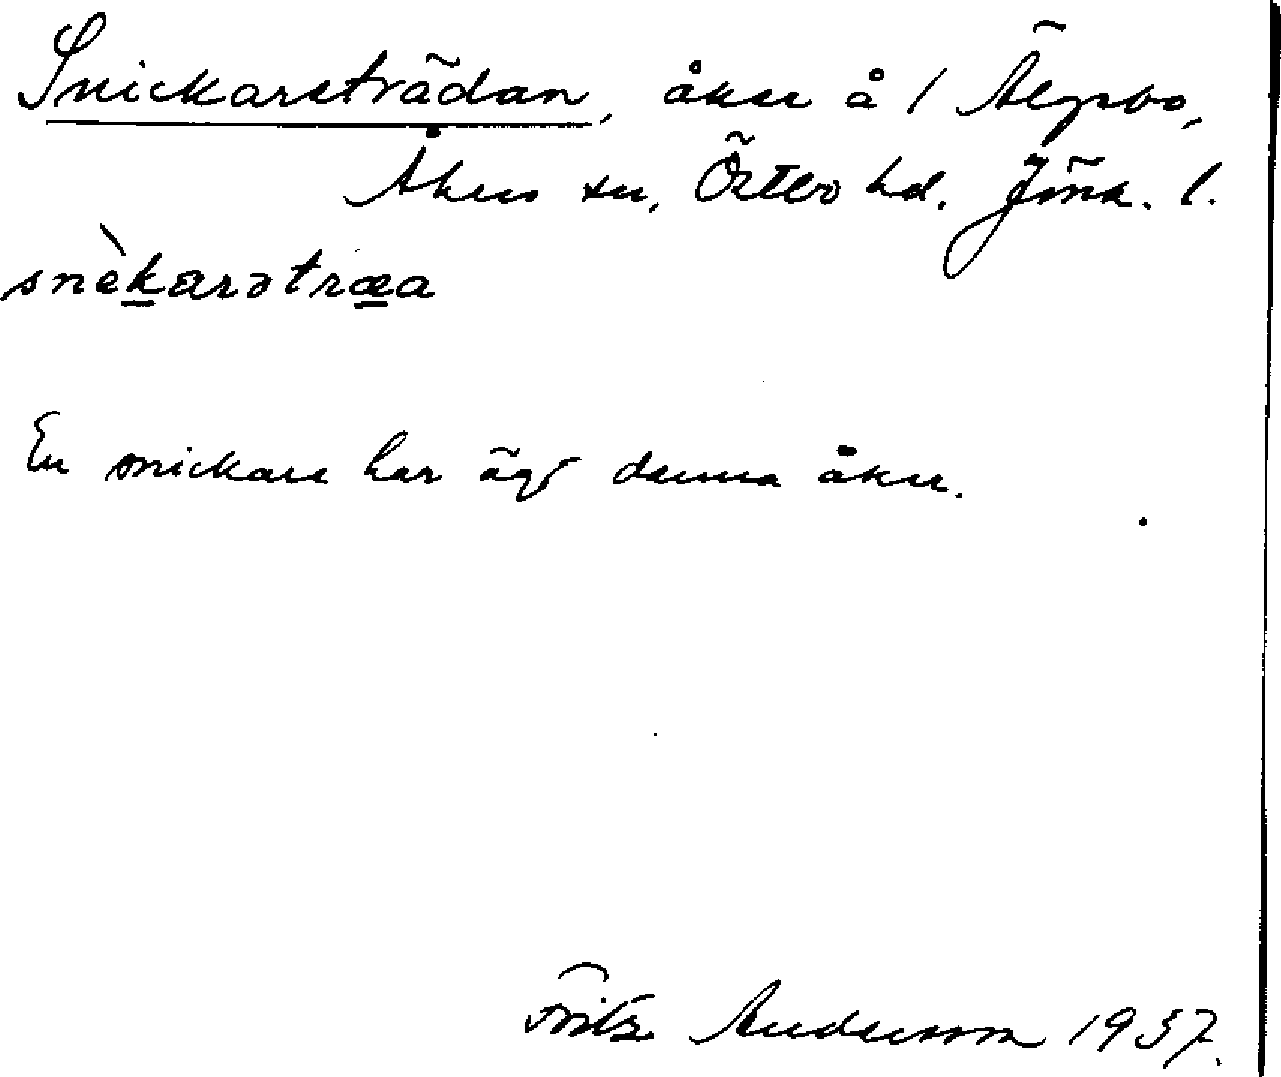 Snickareträdan, åker å 1 Älgsbo,
Åkers sn, Östbo hd. Jönk. l.
snèkarətræa
En snickare har ägt denna åker.
Fritz Andersson 1937.